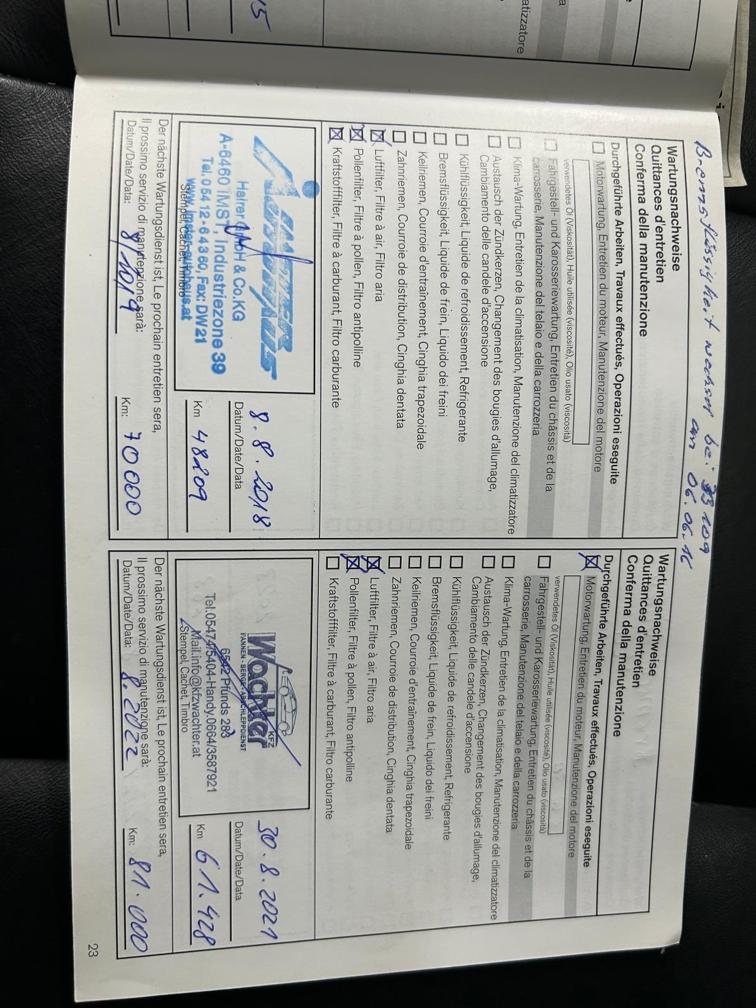 Bremsflüssigkeit wechsel bei 33 109
am 06.06.16
Wartungsnachweise
Quittances d'entretien
Conferma della manutenzione
Durchgeführte Arbeiten, Travaux effectués, Operazioni eseguite
Motorwartung, Entretien du moteur, Manutenzione del motore
verwendetes Öl (Viskosität), Huile utilisée (viscosité), Olio usato (viscosità)
Fahrgestell- und Karosseriewartung, Entretien du châssis et de la
carrosserie, Manutenzione del telaio e della carrozzeria
Klima-Wartung, Entretien de la climatisation, Manutenzione del climatizzatore
Austausch der Zündkerzen, Changement des bougies d'allumage,
Cambiamento delle candele d'accensione
Kühlflüssigkeit, Liquide de refroidissement, Refrigerante
Bremsflüssigkeit, Liquide de frein, Liquido dei freni
Keilriemen, Courroie d'entraînement, Cinghia trapezoidale
Zahnriemen, Courroie de distribution, Cinghia dentata
Luftfilter, Filtre à air, Filtro aria
Pollenfilter, Filtre à pollen, Filtro antipolline
Kraftstofffilter, Filtre à carburant, Filtro carburante
GmbH & Co.KG
A-6460 IMST, Industriezone 39
Tel. 0 54 12 - 6 43 60, Fax: DW21
Stempel, Cachet, Timbro
8.8.2018
Datum/Date/Data
Km 48209
Der nächste Wartungsdienst ist, Le prochain entretien sera,
Il prossimo servizio di manutenzione sarà:
Datum/Date/Data: 8/2019
Km: 70000
Wartungsnachweise
Quittances d'entretien
Conferma della manutenzione
Durchgeführte Arbeiten, Travaux effectués, Operazioni eseguite
Motorwartung, Entretien du moteur, Manutenzione del motore
verwendetes Öl (Viskosität), Huile utilisée (viscosité), Olio usato (viscosità)
Fahrgestell- und Karosseriewartung, Entretien du châssis et de la
carrosserie, Manutenzione del telaio e della carrozzeria
Klima-Wartung, Entretien de la climatisation, Manutenzione del climatizzatore
Austausch der Zündkerzen, Changement des bougies d'allumage,
Cambiamento delle candele d'accensione
Kühlflüssigkeit, Liquide de refroidissement, Refrigerante
Bremsflüssigkeit, Liquide de frein, Liquido dei freni
Keilriemen, Courroie d'entraînement, Cinghia trapezoidale
Zahnriemen, Courroie de distribution, Cinghia dentata
Luftfilter, Filtre à air, Filtro aria
Pollenfilter, Filtre à pollen, Filtro antipolline
Kraftstofffilter, Filtre à carburant, Filtro carburante
KFZ
Wachter
PANNEN - BERGE - ABSCHLEPPDIENST
Pfunds
Tel.05474/5404-Handy.0664/3587921
Mail.info@kfzwachter.at
Stempel, Cachet, Timbro
30.8.2021
Datum/Date/Data
Km 61.428
Der nächste Wartungsdienst ist, Le prochain entretien sera,
Il prossimo servizio di manutenzione sarà:
Datum/Date/Data: 8.2022
Km: 81.000
23